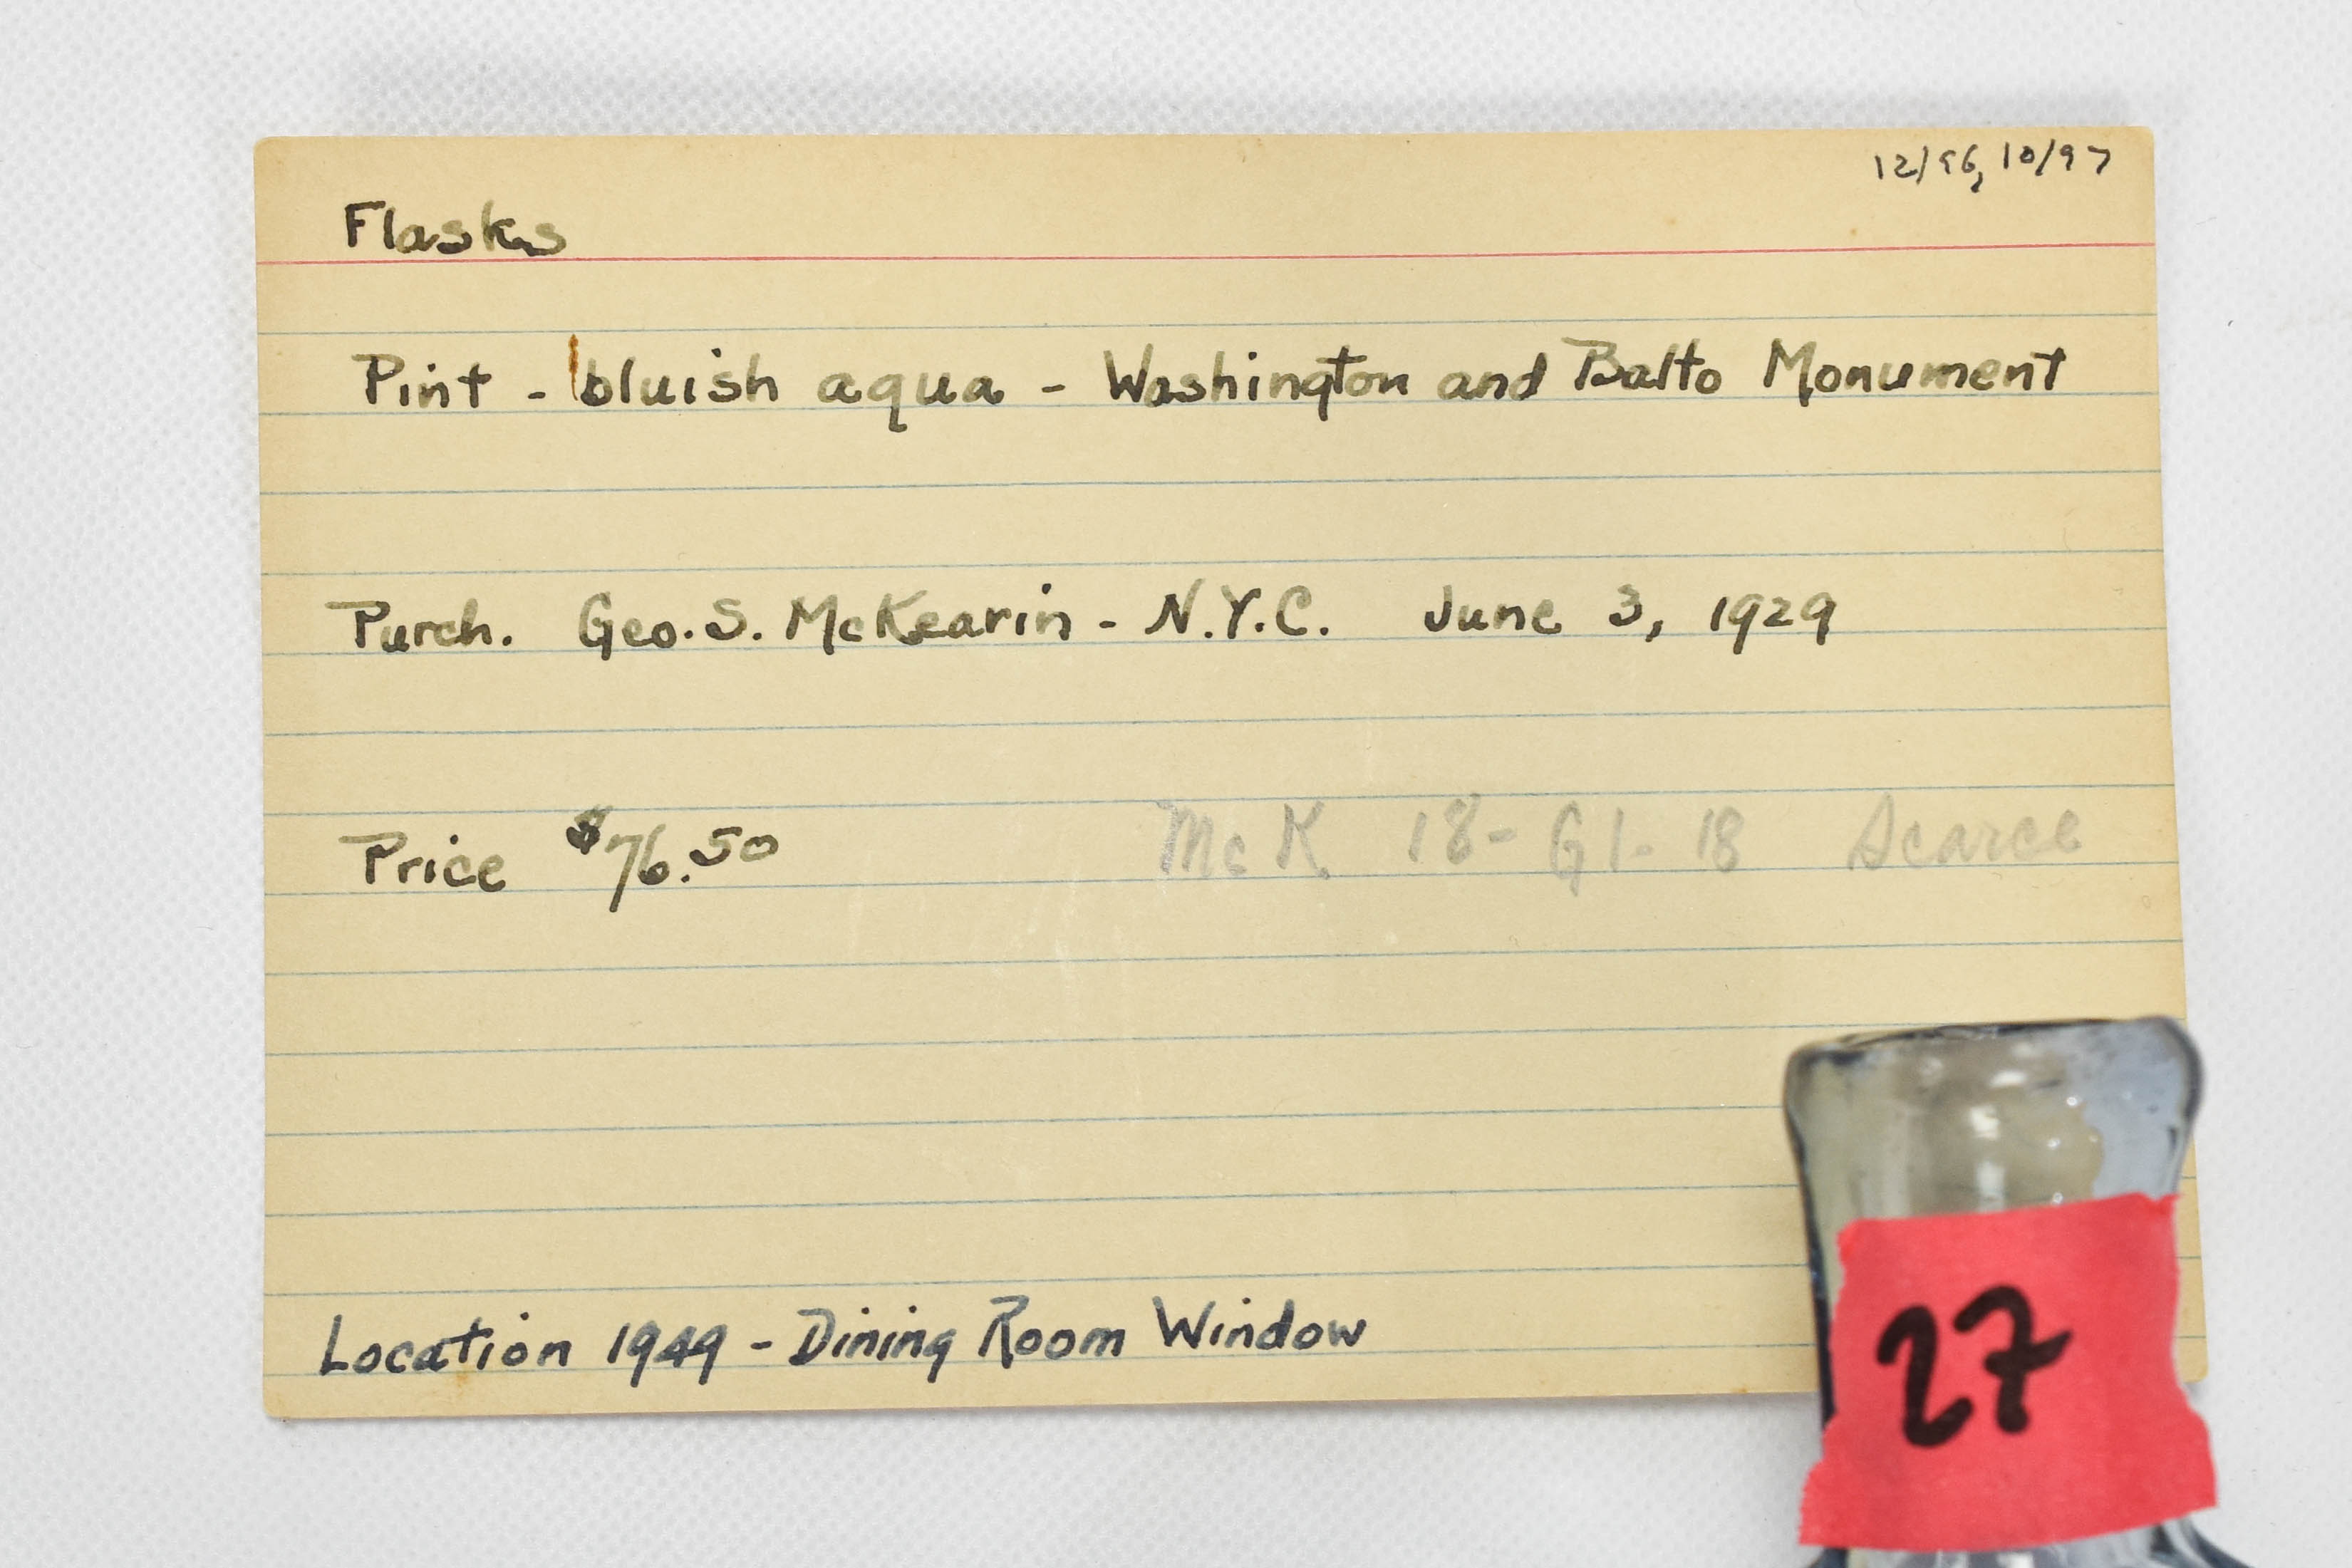 12/96, 10/97
Flasks
Pint - bluish aqua - Washington and Balto Monument
Purch. Geo. S. McKearin - N.Y.C. June 3, 1929
Price $76.50 McK 18- G1- 18 Scarce
Location 1949 - Dining Room Window
27